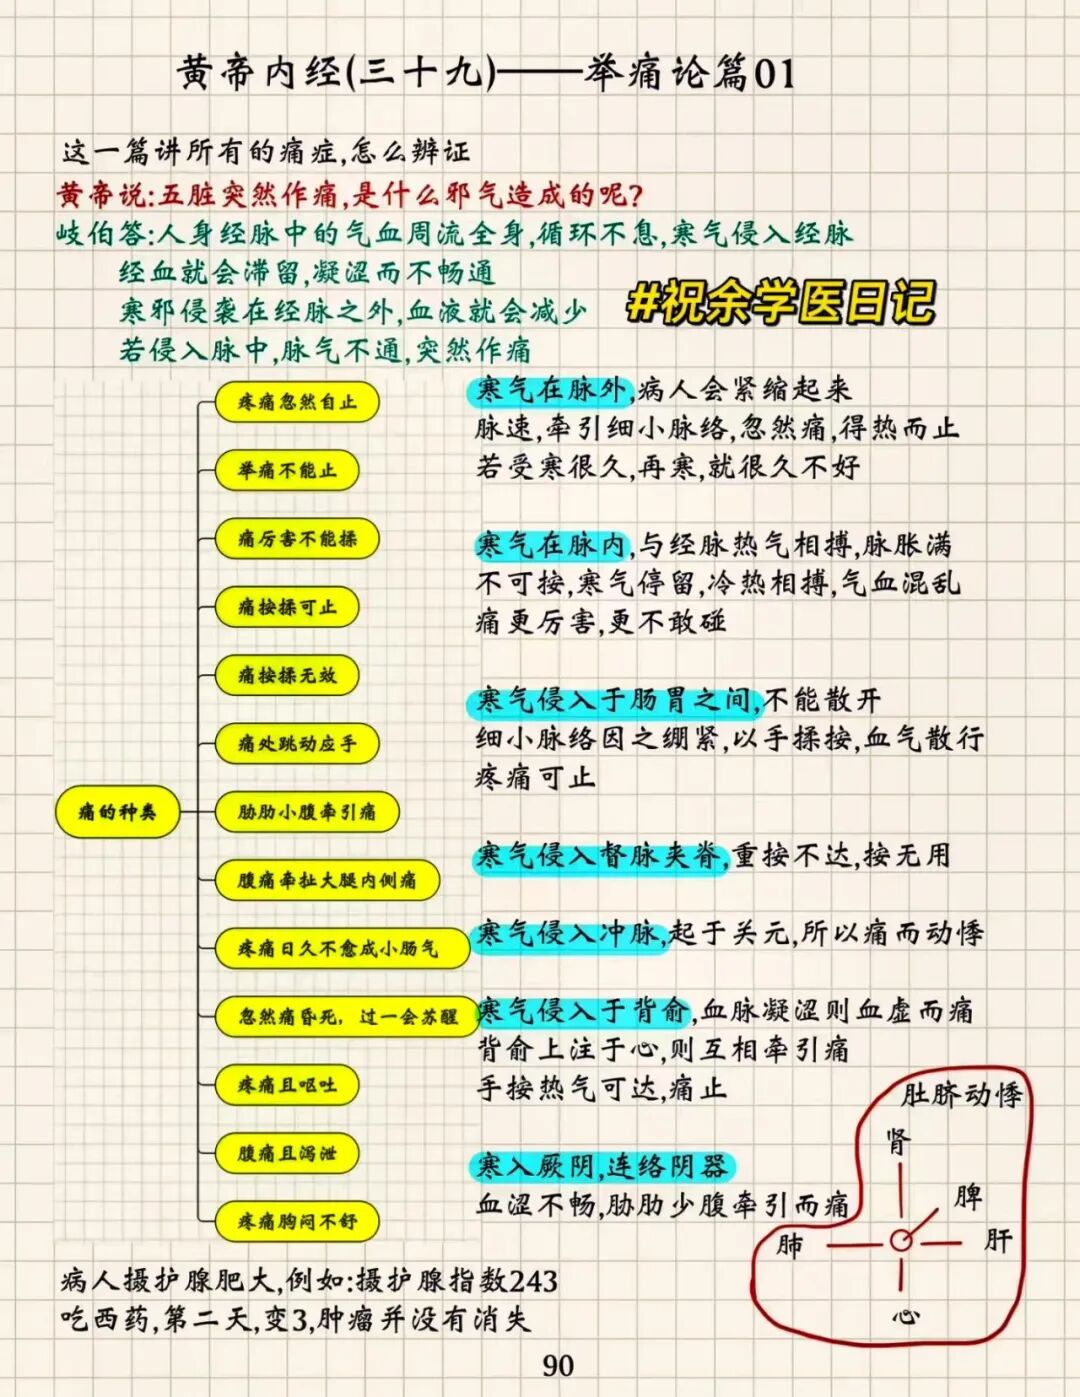 黄帝内经(三十九)——举痛论篇01
这一篇讲所有的痛症,怎么辨证
黄帝说:五脏突然作痛,是什么邪气造成的呢?
岐伯答:人身经脉中的气血周流全身,循环不息,寒气侵入经脉
经血就会滞留,凝涩而不畅通
寒邪侵袭在经脉之外,血液就会减少
若侵入脉中,脉气不通,突然作痛
#祝余学医日记
痛的种类
疼痛忽然自止
举痛不能止
痛厉害不能揉
痛按揉可止
痛按揉无效
痛处跳动应手
胁肋小腹牵引痛
腹痛牵扯大腿内侧痛
疼痛日久不愈成小肠气
忽然痛昏死，过一会苏醒
疼痛且呕吐
腹痛且泻泄
疼痛胸闷不舒
寒气在脉外,病人会紧缩起来
脉速,牵引细小脉络,忽然痛,得热而止
若受寒很久,再寒,就很久不好
寒气在脉内,与经脉热气相搏,脉胀满
不可按,寒气停留,冷热相搏,气血混乱
痛更厉害,更不敢碰
寒气侵入于肠胃之间,不能散开
细小脉络因之绷紧,以手揉按,血气散行
疼痛可止
寒气侵入督脉夹脊,重按不达,按无用
寒气侵入冲脉,起于关元,所以痛而动悸
寒气侵入于背俞,血脉凝涩则血虚而痛
背俞上注于心,则互相牵引痛
手按热气可达,痛止
寒入厥阴,连络阴器
血涩不畅,胁肋少腹牵引而痛
肚脐动悸
肾
脾
肺
肝
心
病人摄护腺肥大,例如:摄护腺指数243
吃西药,第二天,变3,肿瘤并没有消失
90